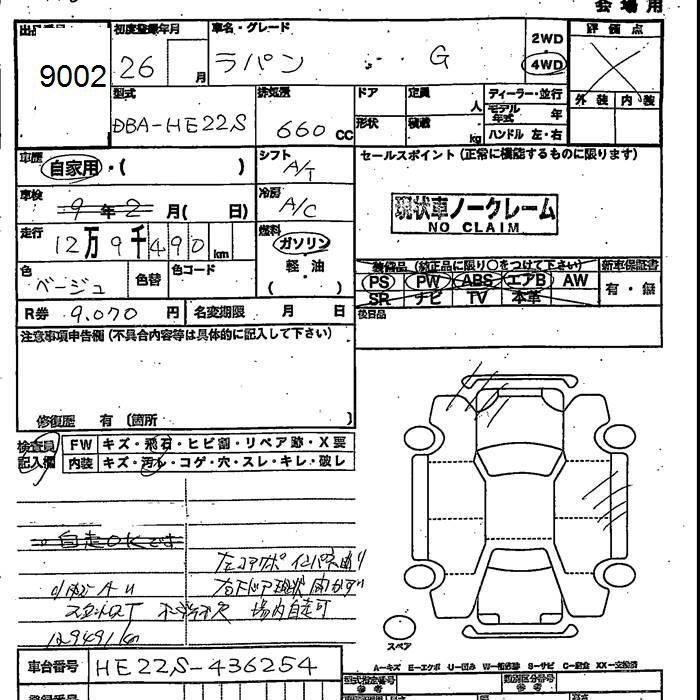 会場用
出品番号 初度登録年月 車名・グレード 2WD 評価点
9002 26 月 ラパン G 4WD
型式 排気量 ドア 定員 人 ディーラー・並行 外装 内装
DBA-HE22S 660 CC 形状 積載 kg モデル年式 年
ハンドル 左・右
車歴 自家用・( ) シフト A/T セールスポイント(正常に機能するものに限ります)
車検 9年2月( 日) 冷房 A/C 現状車ノークレーム
NO CLAIM
走行 12万9千490km 燃料 ガソリン
軽・油
( )
色 ベージュ 色替 色コード
装備品(純正品に限り○をつけて下さい) 新車保証書
PS PW ABS エアB AW 有・無
SR ナビ TV 本革
R券 9,070円 名変期限 月 日 後日品
注意事項申告欄(不具合内容等は具体的に記入して下さい)
修復歴 有 (箇所 )
検査員記入欄 FW キズ・飛石・ヒビ割・リペア跡・X要
内装 キズ・汚れ・コゲ・穴・スレ・キレ・破レ
自走OKです
場内自走可
129491km
スペア
A-キズ E-エクボ U-凹み W-補修跡 S-サビ C-腐食 XX-交換済
車台番号 HE22S-436254
型式指定番号 参考 類別区分番号 参考
登録番号